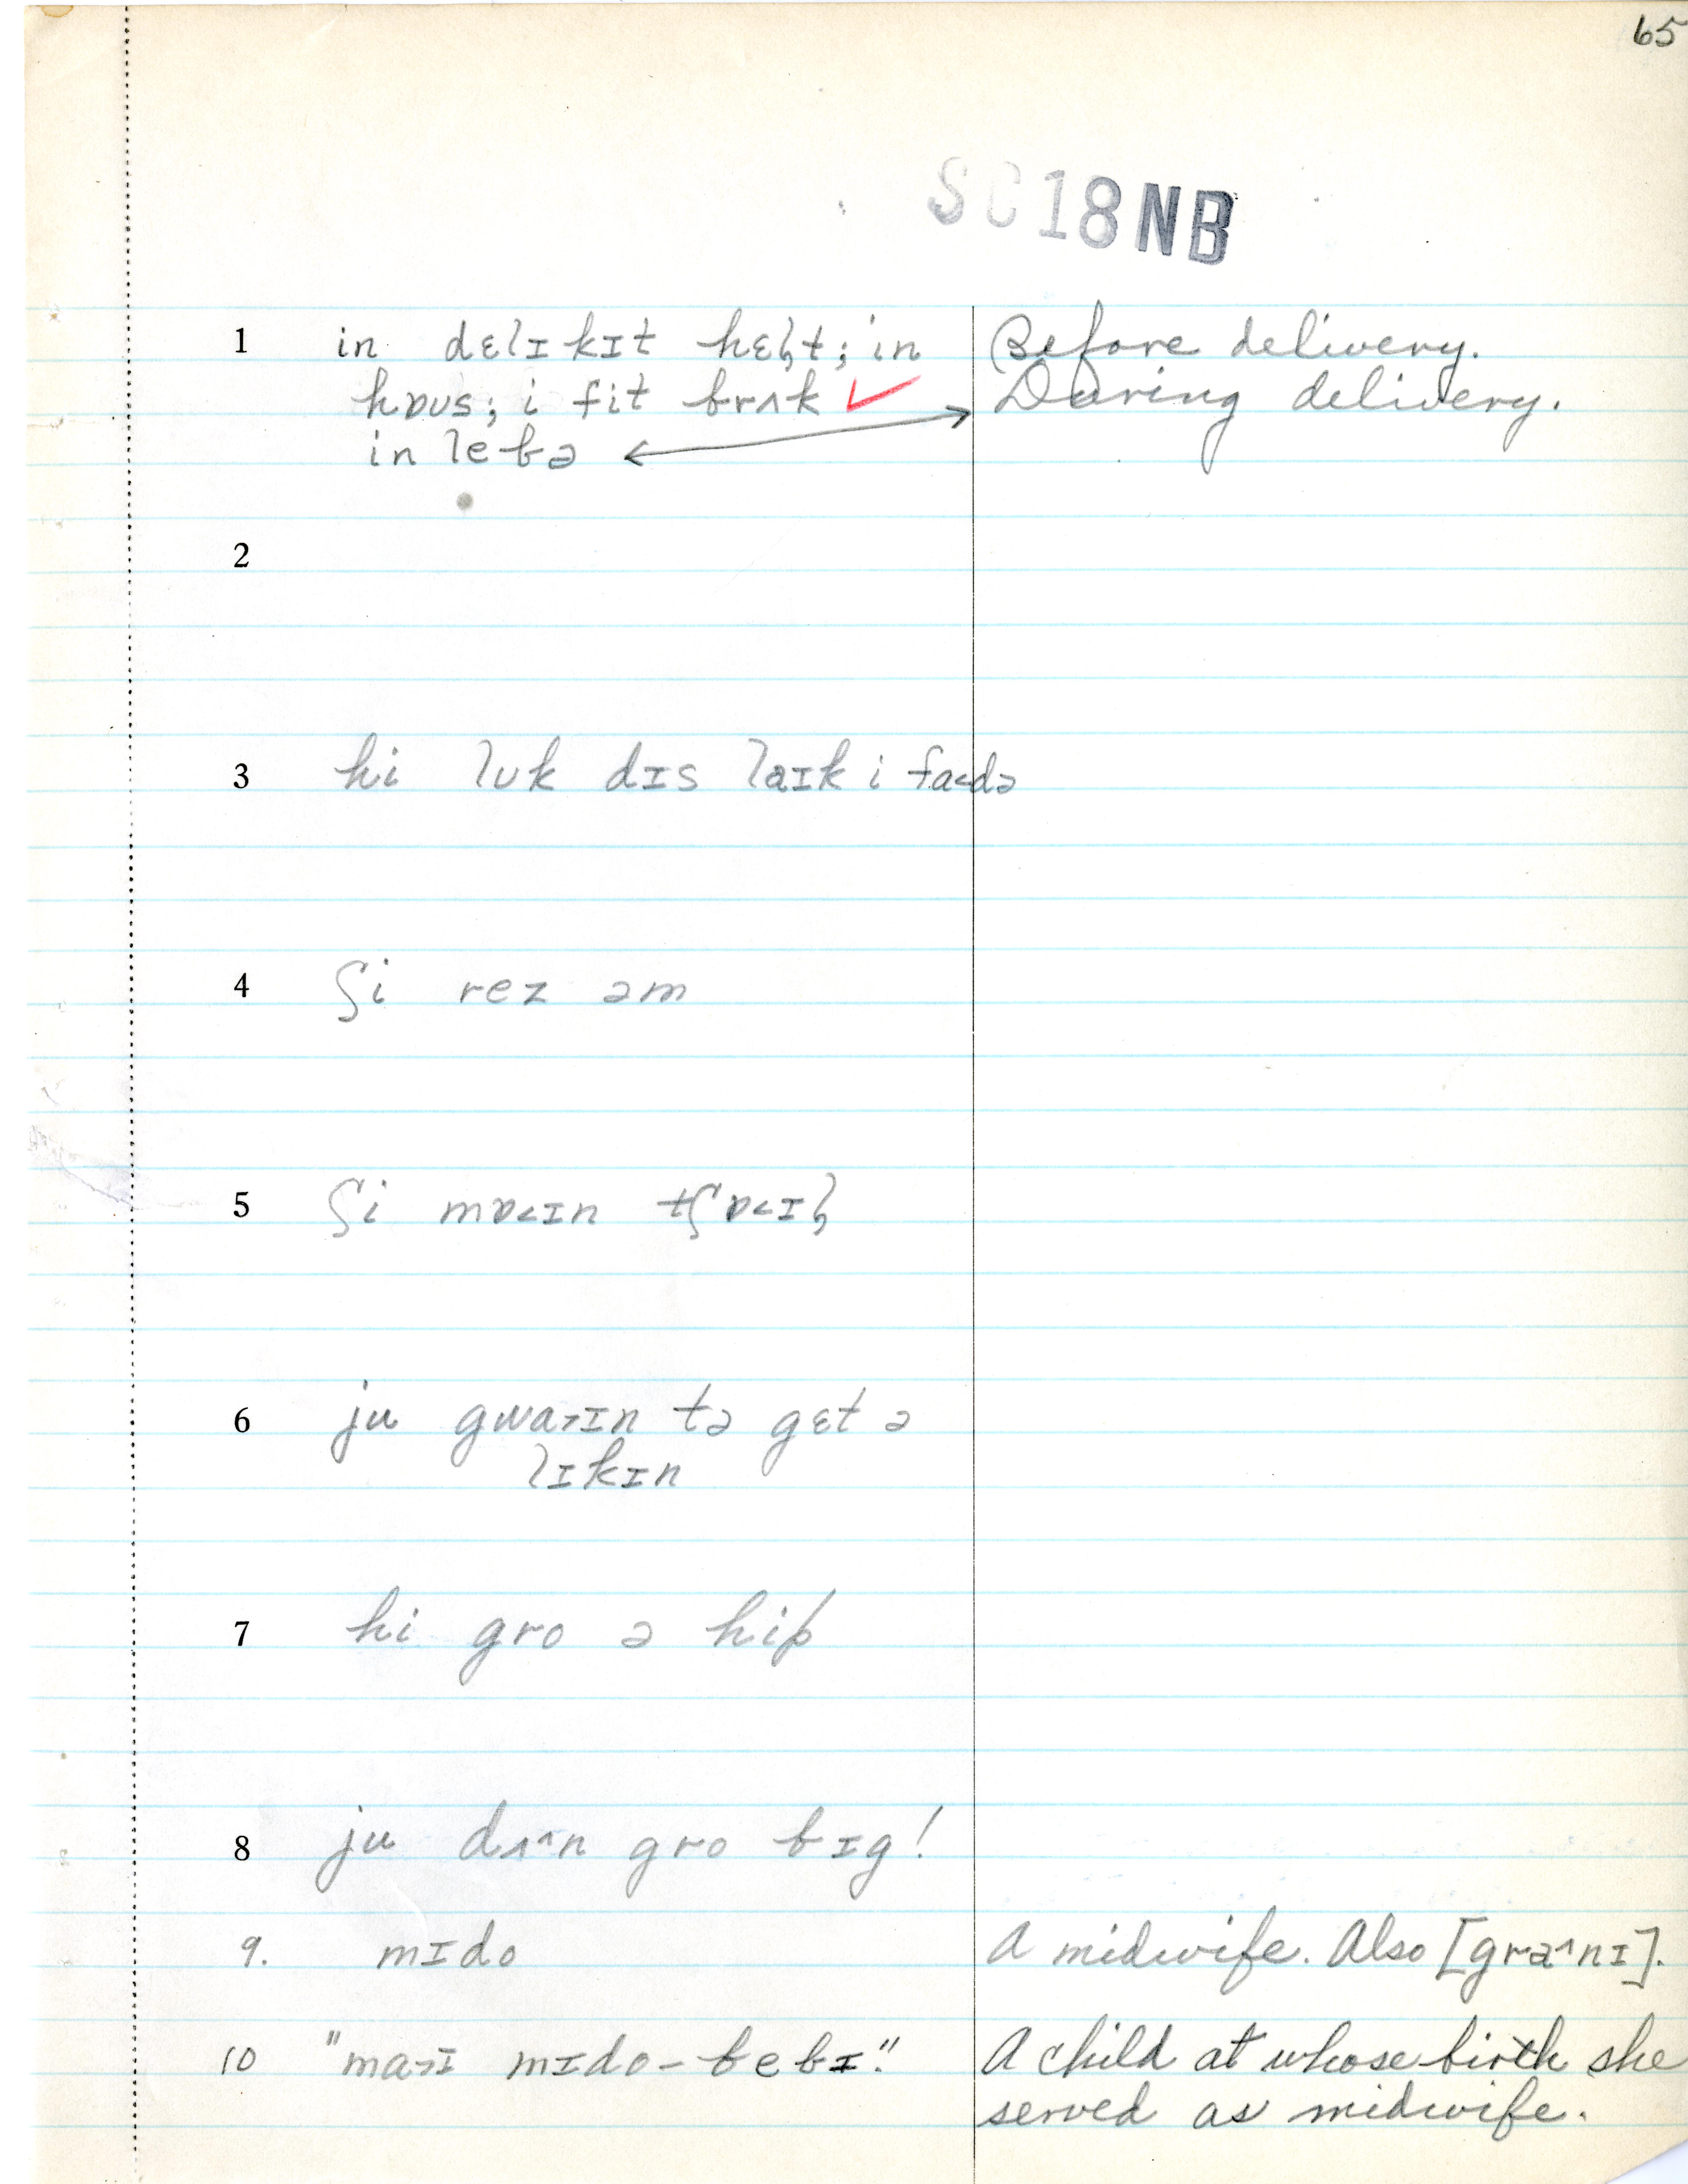 65
SC18NB
1 in dɛlɪkɪt hɛl̥t; in Before delivery.
hɒʊs; i fit brʌk ✓ During delivery.
in lebə ↔
2
3 hi lʊk dɪs laɪk i fa˂də
4 ʃi rez əm
5 ʃi mɒ˂ɪn tʃɒ˂ɪl̥
6 ju gwa˃ɪn tə gɛt ə
lɪkɪn
7 hi gro ə hip
8 ju dʌ˄n gro bɪg!
9. mɪdo A midwife. Also [gra˄nɪ].
10 "ma˃ɪ mɪdo-bebɪ." A child at whose birth she
served as midwife.